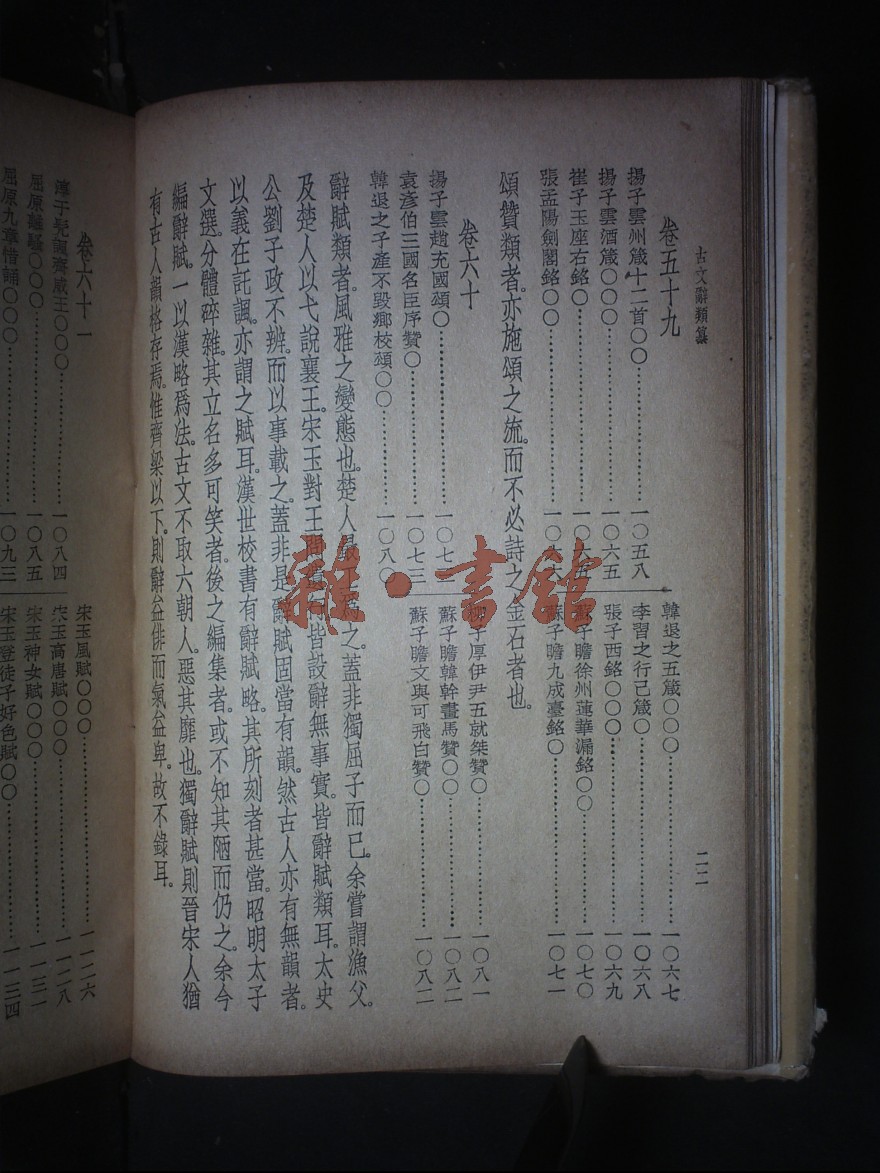 古文辭類纂
二二
卷五十九
揚子雲州箴十二首〇〇…………一〇五八
揚子雲酒箴〇〇〇…………一〇六五
崔子玉座右銘〇…………一〇六五
張孟陽劍閣銘〇〇…………一〇六六
韓退之五箴〇〇〇…………一〇六七
李習之行己箴〇…………一〇六八
張子西銘〇〇〇…………一〇六九
蘇子瞻徐州蓮華漏銘〇〇…………一〇七〇
蘇子瞻九成臺銘〇…………一〇七一
頌贊類者。亦施頌之流。而不必詩之金石者也。
卷六十
揚子雲趙充國頌〇…………一〇七二
袁彥伯三國名臣序贊〇…………一〇七三
韓退之子產不毀鄉校頌〇〇…………一〇八〇
柳子厚伊尹五就桀贊〇…………一〇八一
蘇子瞻韓幹畫馬贊〇〇…………一〇八二
蘇子瞻文與可飛白贊〇…………一〇八二
辭賦類者。風雅之變態也。楚人最工為之。蓋非獨屈子而已。余嘗謂漁父。
及楚人以弋說襄王。宋玉對王問遺行。皆設辭無事實。皆辭賦類耳。太史
公劉子政不辨。而以事載之。蓋非是。辭賦固當有韻。然古人亦有無韻者。
以義在託諷。亦謂之賦耳。漢世校書有辭賦略。其所刻者甚當。昭明太子
文選。分體碎雜。其立名多可笑者。後之編集者。或不知其陋而仍之。余今
編辭賦。一以漢略爲法。古文不取六朝人。惡其靡也。獨辭賦則晉宋人猶
有古人韻格存焉。惟齊梁以下。則辭益俳而氣益卑。故不錄耳。
卷六十一
淳于髡諷齊威王〇〇〇…………一〇八四
屈原離騷〇〇〇…………一〇八五
屈原九章惜誦〇〇〇…………一〇九三
宋玉風賦〇〇〇…………一一二六
宋玉高唐賦〇〇〇…………一一二八
宋玉神女賦〇〇〇…………一一三一
宋玉登徒子好色賦〇〇…………一一三四
雜·書館